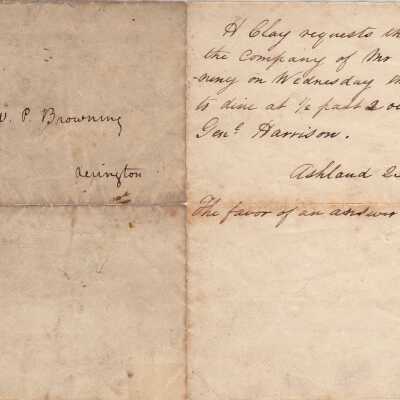 P. Browning
Lexington
H Clay requests th
the Company of Mr
ning on Wednesday th
to dine at ½ past 2 o
Genl. Harrison.
Ashland
The favor of an answer